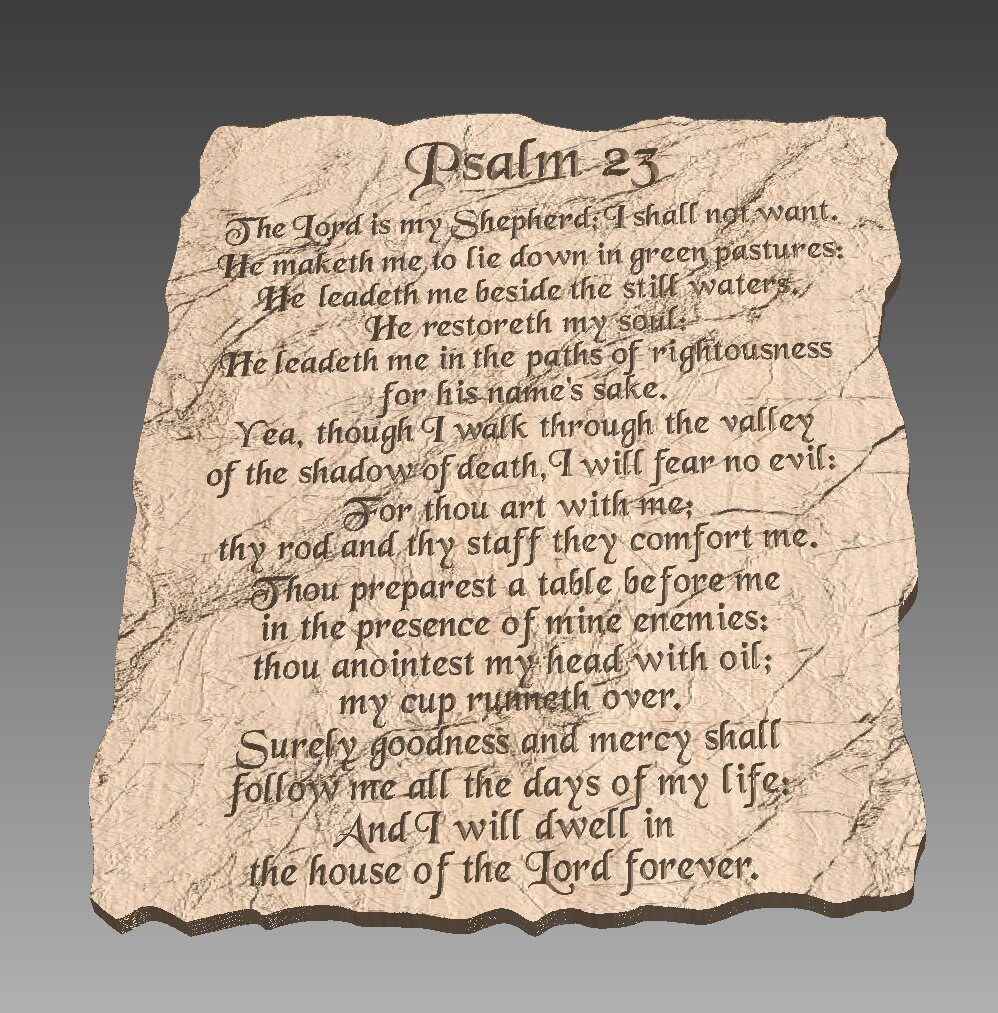 Psalm 23
The Lord is my Shepherd; I shall not want.
He maketh me to lie down in green pastures:
He leadeth me beside the still waters.
He restoreth my soul:
He leadeth me in the paths of rightousness
for his name's sake.
Yea, though I walk through the valley
of the shadow of death, I will fear no evil:
For thou art with me;
thy rod and thy staff they comfort me.
Thou preparest a table before me
in the presence of mine enemies:
thou anointest my head with oil;
my cup runneth over.
Surely goodness and mercy shall
follow me all the days of my life:
And I will dwell in
the house of the Lord forever.